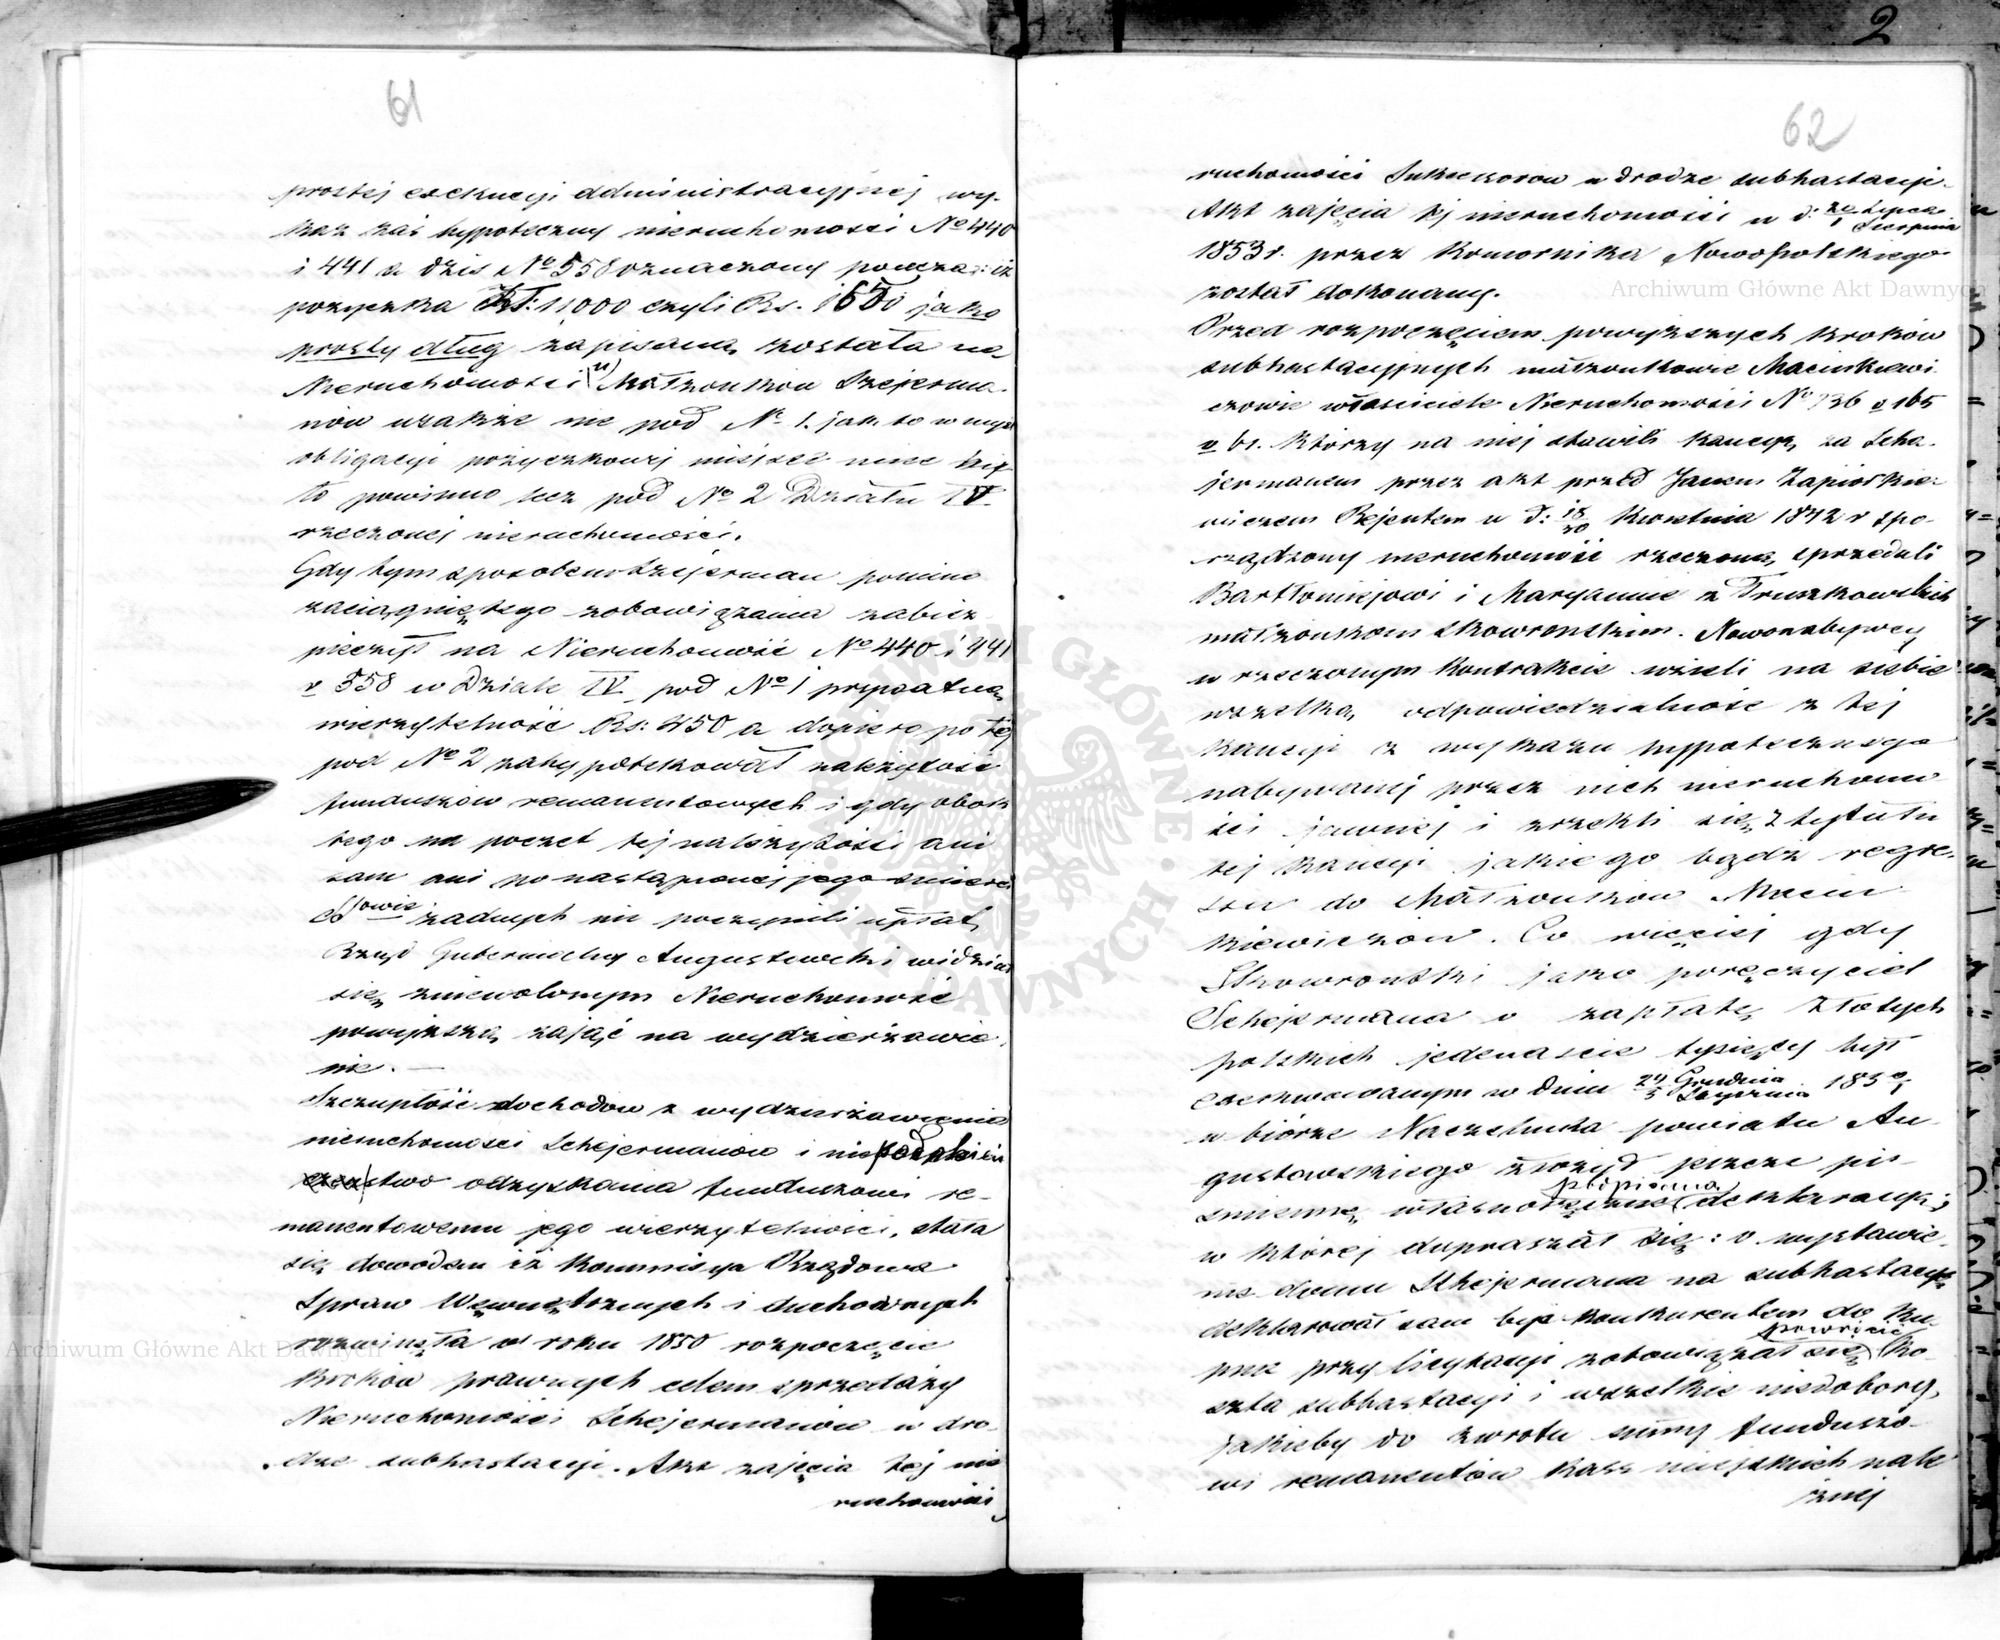 2
61
prostej exekucyi administracyjnej wy-
kaz zaś hypoteczny nieruchomości No 440
i 441 a dziś No 558 oznaczony poucza: iż
pożyczka Zł: 11000 czyli Rs. 1650 jako
prosty dług zapisaną została na
Nieruchomości Małżonków Szejerma-
nów wszakże nie pod No 1. jak to w myśl
obligacyi pożyczkowej miejsce mieć
to powinno lecz pod No 2 Działu IV
rzeczonej nieruchomości.
Gdy tym sposobem Szejerman pomimo
zaciągniętego zobowiązania zabez-
pieczył na Nieruchomość No 440 i 441
v 558 w Dziale IV pod No 1 prywatną
wierzytelność Rs: 450 a dopiero po tej
pod No 2 zahypotekował należytość
funduszów remanentowych i gdy obok
tego na poczet tej należytości ani
sam ani po nastąpionej jego śmierci
żadnych nie poczynili upłat,
Rząd Gubernialny Augustowski widział
się zniewolonym Nieruchomość
powyższą zająć na wydzierżawie-
nie. —
Szczupłość dochodów z wydzierżawienia
nieruchomości Schejermanów i
odzyskania funduszowi re-
manentowemu jego wierzytelności, stała
się dowodem iż Kommisya Rządowa
Spraw Wewnętrznych i duchownych
rozwinęła w roku 1850 rozpoczęcie
kroków prawnych celem sprzedaży
Nieruchomości Schejermanów w dro-
dze subhastacyi. Akt zajęcia tej nie
ruchomości
62
ruchomości Sukcesorów w drodze subhastacyi.
Akt zajęcia tej nieruchomości w d: 20 Lipca / 1 Sierpnia
1853 r. przez Komornika Nowopolskiego
został dokonany.
Przed rozpoczęciem powyższych kroków
subhastacyjnych małżonkowie Macinkiewi-
czowie właściciele Nieruchomości No 136 v 165
v 61. którzy na niej stawili kaucyę za Scha-
jermanem przez akt przed Janem Zapiórkie-
wiczem Rejentem w d: 18/30 Kwietnia 1842 r spo-
rządzony nieruchomość rzeczoną sprzedali
Bartłomiejowi i Maryannie z Truszkowskich
małżonkom Skowrońskim. Nowonabywcy
w rzeczonym Kontrakcie wzieli na siebie
wszelką odpowiedzialność z tej
kaucyi z wykazu hypotecznego
nabywanej przez nich nieruchomo
ści jawnej i zrzekli się z tytułu
tej kaucyi jakiego bądź regre-
ssu do Małżonków Macin
kiewiczów. Co więcej gdy
Skowroński jako poręczyciel
Schejermana o zapłatę złotych
polskich jedenaście tysięcy był
exekwowanym w dniu 24 Grudnia / 5 Stycznia 1850/1
w biórze Naczelnika powiatu Au-
gustowskiego złożył przez pi-
śmienną własnoręcznie podpisaną deklaracyę;
w której dopraszał się: o wystawie-
nie domu Schejermana na subhastacyę
deklarował sam być konkurentem do ku-
pna przy licytacyi zobowiązał się powrócić ko-
szta subhastacyi i wszelkie niedobory,
jakieby do zwrotu summy fundusza-
wi remanentów Kass miejskich nale
żnej